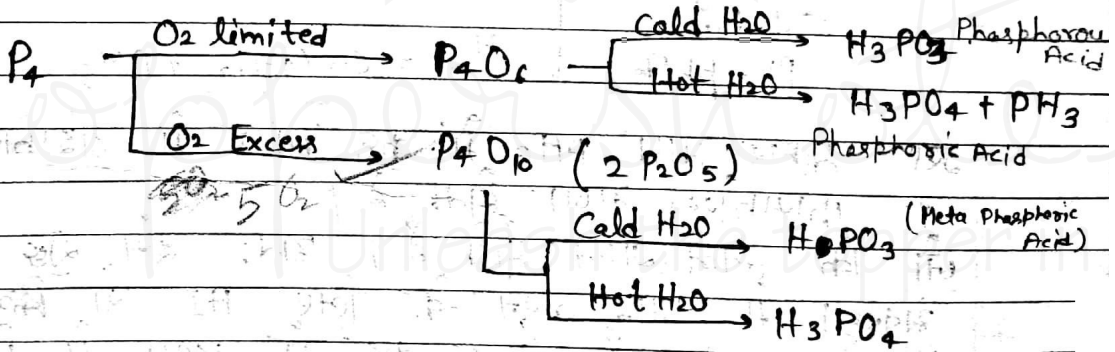 P4 O2 limited P4O6 Cold H2O H3PO3 Phosphorou Acid
Hot H2O H3PO4 + PH3
Phosphoric Acid
O2 Excess P4O10 (2 P2O5)
5 O2
Cold H2O HPO3 (Meta Phosphoric Acid)
Hot H2O H3PO4